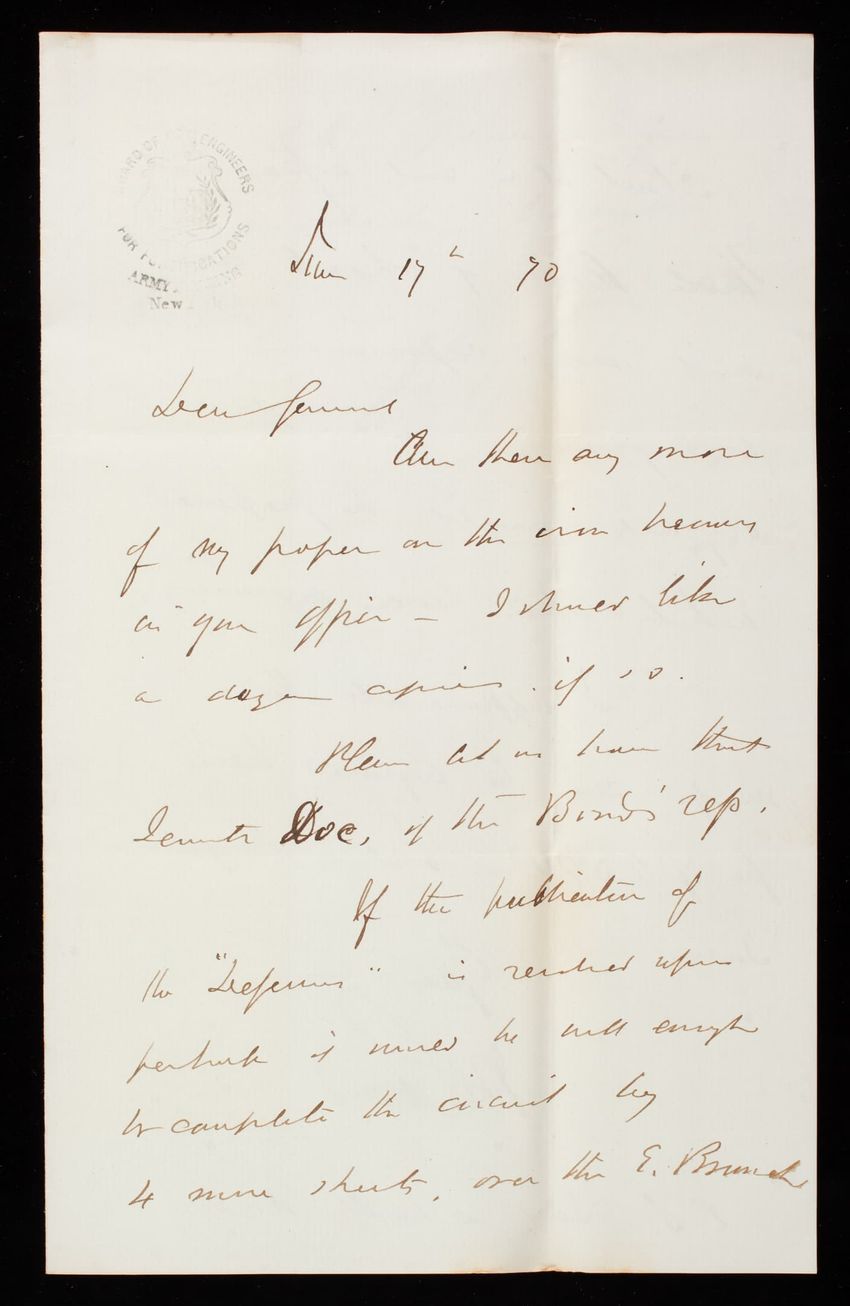 BOARD OF ENGINEERS
FOR FORTIFICATIONS
ARMY BUILDING
New York
17th 70
Dear General
Are there any more
of my paper on the iron beams
in your office — I should like
a dozen copies if so.
Please let us have that
Senate Doc, of the Board's rep.
If the publication of
the "Defenses" is resolved upon
perhaps it would be well enough
to complete the circuit by
4 more sheets, over the E. Branch